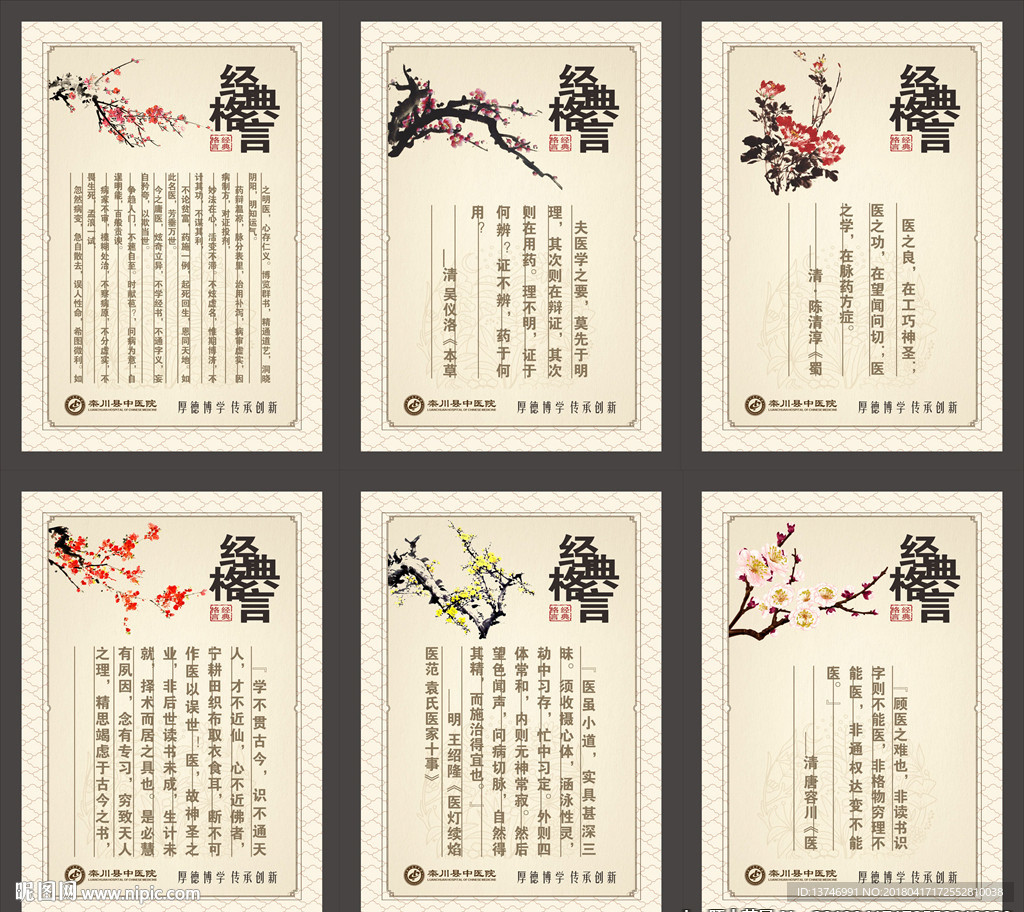 经典
格言
经典
格言
之明医，心存仁义。博览群书，精通道艺，洞晓
阴阳，明知运气。
药辩温凉，脉分表里，治用补泻，病审虚实，因
病制方，对证投剂，
妙法在心，活变不滞。不炫虚名，惟期博济，不
计其功，不谋其利，
不论贫富，药施一例，起死回生，恩同天地。如
此名医，芳垂万世。
今之庸医，炫奇立异，不学经书，不通字义，妄
自矜夸，以欺当世。
争趋人门，不速自至。时献苞?，问病为意，自
逞明能，百般贡谀。
病家不审，模糊处治，不察病原，不分虚实，不
畏生死，孟浪一试，
忽然病变，急自散去，误人性命，希图微利。如
栾川县中医院
LUANCHUAN HOSPITAL OF CHINESE MEDICINE
厚德博学 传承创新
经典
格言
经典
格言
夫医学之要，莫先于明
理，其次则在辩证，其次
则在用药。理不明，证于
何辨？证不辨，药于何
用？
——清 吴仪洛《本草
栾川县中医院
LUANCHUAN HOSPITAL OF CHINESE MEDICINE
厚德博学 传承创新
经典
格言
经典
格言
医之良，在工巧神圣；
医之功，在望闻问切；医
之学，在脉药方症。
——清·陈清淳《蜀
栾川县中医院
LUANCHUAN HOSPITAL OF CHINESE MEDICINE
厚德博学 传承创新
经典
格言
经典
格言
『学不贯古今，识不通天
人，才不近仙，心不近佛者，
宁耕田织布取衣食耳，断不可
作医以误世！医，故神圣之
业，非后世读书未成，生计未
就，择术而居之具也。是必慧
有夙因，念有专习，穷致天人
之理，精思竭虑于古今之书，
栾川县中医院
LUANCHUAN HOSPITAL OF CHINESE MEDICINE
厚德博学 传承创新
经典
格言
经典
格言
『医虽小道，实具甚深三
昧。须收摄心体，涵泳性灵，
动中习存，忙中习定。外则四
体常和，内则元神常寂。然后
望色闻声，问病切脉，自然得
其精，而施治得宜也。』
——明 王绍隆《医灯续焰
医范 袁氏医家十事》
栾川县中医院
LUANCHUAN HOSPITAL OF CHINESE MEDICINE
厚德博学 传承创新
经典
格言
经典
格言
『顾医之难也，非读书识
字则不能医，非格物穷理不
能医，非通权达变不能
医。』
——清 唐容川《医
栾川县中医院
LUANCHUAN HOSPITAL OF CHINESE MEDICINE
厚德博学 传承创新
昵图网 www.nipic.com
ID:13746991 NO:20180417172552810038